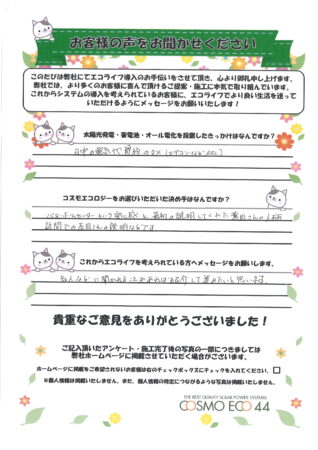 お客様の声をお聞かせください
このたびは弊社にてエコライフ導入のお手伝いをさせて頂き、心より御礼申し上げます。
弊社では、より多くのお客様に喜んで頂けるご提案・施工に本気で取り組んでいます。
これからシステムの導入を考えられているお客様に、エコライフでより良い生活を送って
いただけるようにメッセージをお願いします！
太陽光発電・蓄電池・オール電化を設置したきっかけはなんですか？
日中の電気代節約のため
コスモエコロジーをお選びいただいた決め手はなんですか？
ホームセンターという安心感と最初に説明してくれた
訪問での さんの説明などです
これからエコライフを考えられている方へメッセージをお願いします。
友人などに聞かれることがあれば紹介して薦めたいと思います。
貴重なご意見をありがとうございました！
ご記入頂いたアンケート・施工完了後の写真の一部につきましては
弊社ホームページに掲載させていただく場合がございます。
ホームページに掲載をご希望されないお客様は右のチェックボックスにチェックを入れてください。
※個人情報は掲載いたしません。また、個人情報の特定につながるような写真は掲載いたしません。
THE BEST QUALITY SOLAR POWER SYSTEMS
COSMO ECO 44